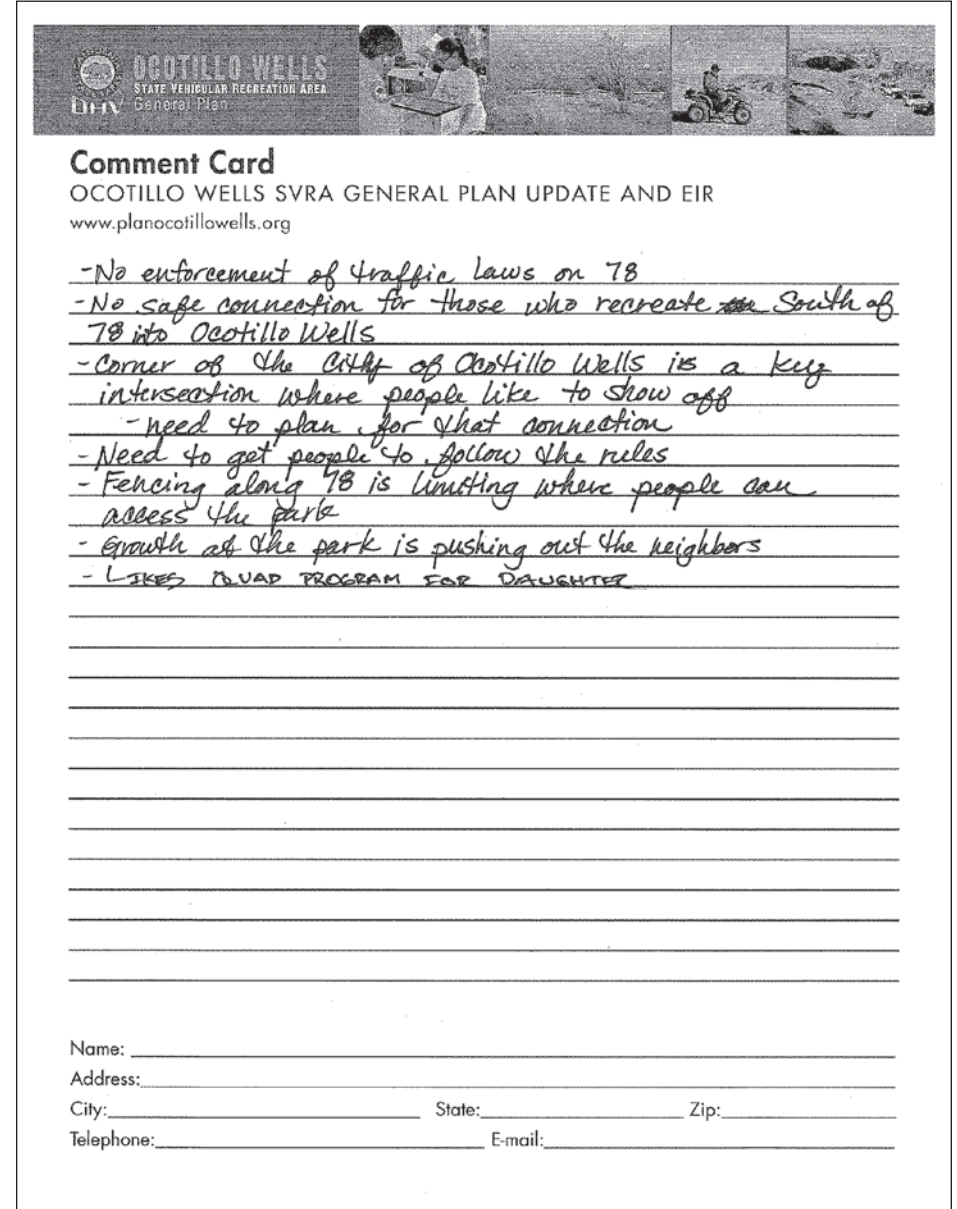 OCOTILLO WELLS
STATE VEHICULAR RECREATION AREA
OHV General Plan
Comment Card
OCOTILLO WELLS SVRA GENERAL PLAN UPDATE AND EIR
www.planocotillowells.org
- No enforcement of traffic laws on 78
- No safe connection for those who recreate South of
78 into Ocotillo Wells
- Corner of the city of Ocotillo Wells is a key
intersection where people like to show off
- need to plan for that connection
- Need to get people to follow the rules
- Fencing along 78 is limiting where people can
access the park
- Growth at the park is pushing out the neighbors
- LIKES QUAD PROGRAM FOR DAUGHTER
Name:
Address:
City: State: Zip:
Telephone: E-mail: